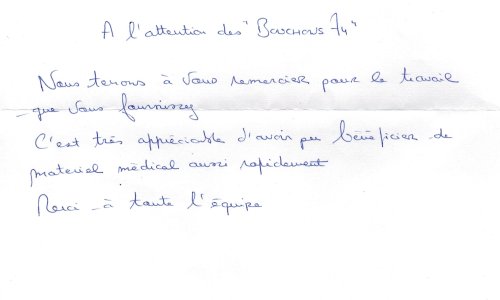 A l'attention des "Bouchons 74"
Nous tenons à vous remercier pour le travail
que vous fournissez
C'est très appréciable d'avoir pu bénéficier de
materiel médical aussi rapidement
Merci à toute l'équipe